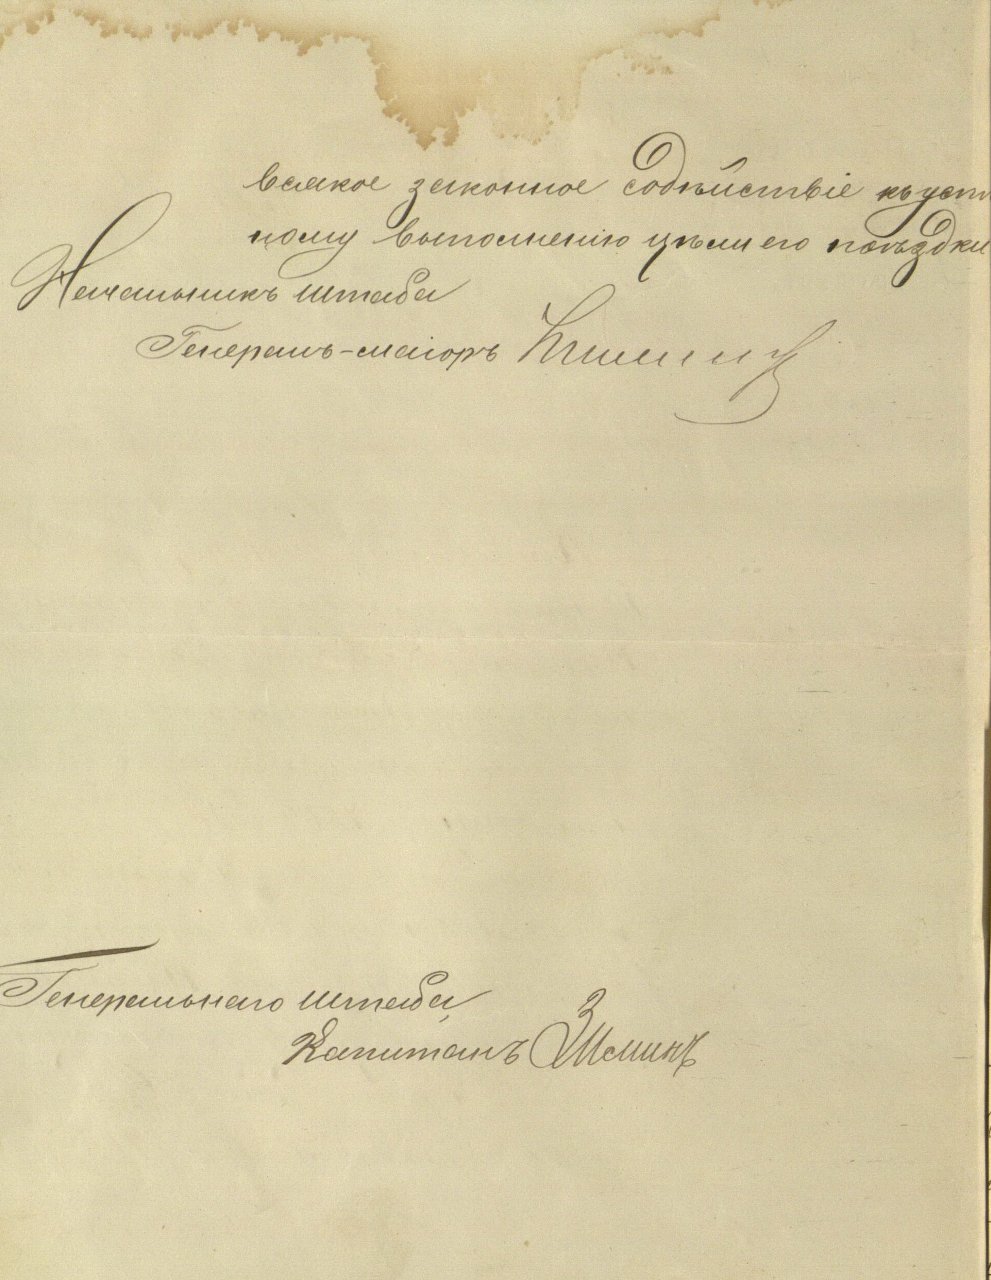 всякое законное содѣйствіе къ усп
ному выполненію цѣли его поѣздки
Начальникъ штаба
Генералъ-маіоръ
Генеральнаго штаба,
Капитанъ